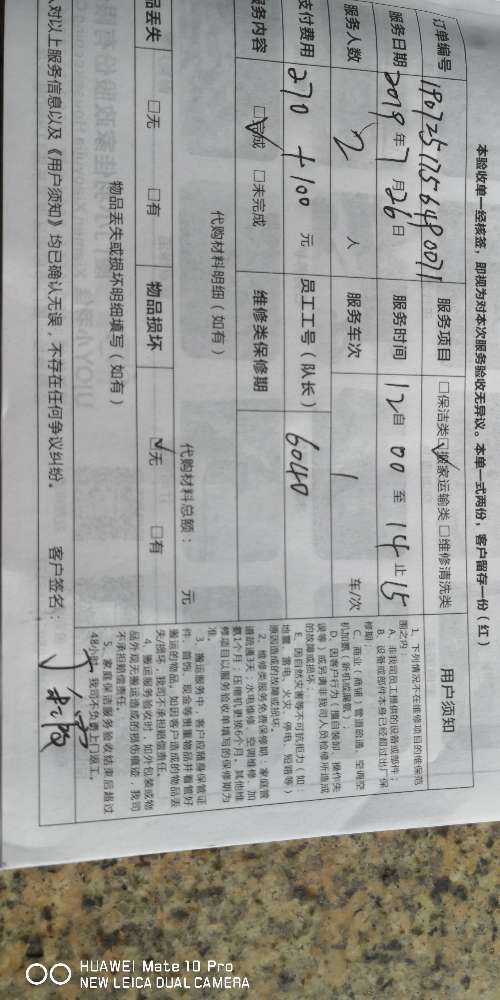 本验收单一经核签，即视为对本次服务验收无异议。本单一式两份，客户留存一份（红）
订单编号 190725175649007 服务项目 □保洁类 ☑搬家运输类 □维修清洗类
服务日期 2019 年 7 月 26 日 服务时间 12 自 00 至 14 止 15
服务人数 2 人 服务车次 1 车/次
支付费用 270+100 元 员工工号（队长） 6040
服务内容 ☑完成 □未完成 维修类保修期
代购材料明细（如有）
代购材料总额： 元
品丢失 □无 □有 物品损坏 ☑无 □有
物品丢失或损坏明细填写（如有）
对以上服务信息以及《用户须知》均已确认无误，不存在任何争议纠纷。 客户签名：
用户须知
1、下列情况不在维修项目的维保范
围之内：
A、非我司员工提供的设备或部件；
B、设备或部件本身已经超过出厂保
修期；
C、商业（商铺）管道疏通、空调空
机加氟（新机或漏氟）；
D、因客户行为（擅自装卸、操作失
误等）或另请非我司人员检修所造成
的故障或损坏；
E、因自然灾害等不可抗拒力（如：
地震、雷电、火灾、停电、短路等）
原因造成的故障或损坏。
2、维修类服务免费保修期：家庭管
道疏通天、水电维修、空调维修、加
氟1个月；压缩机更换6个月，其他维
修项目以服务验收单填写的保修期为
准。
3、搬运服务中，客户应随身保管证
件、首饰、现金等贵重物品并看管好
搬运的物品，如因客户造成的物品丢
失/损坏，我司不承担赔偿责任。
4、搬运服务验收时，如外包装或物
品外观无搬运造成的损伤痕迹，我司
不承担赔偿责任。
5、家庭保洁服务验收结束后超过
48小时，我司不负责上门返工。
HUAWEI Mate 10 Pro
NEW LEICA DUAL CAMERA